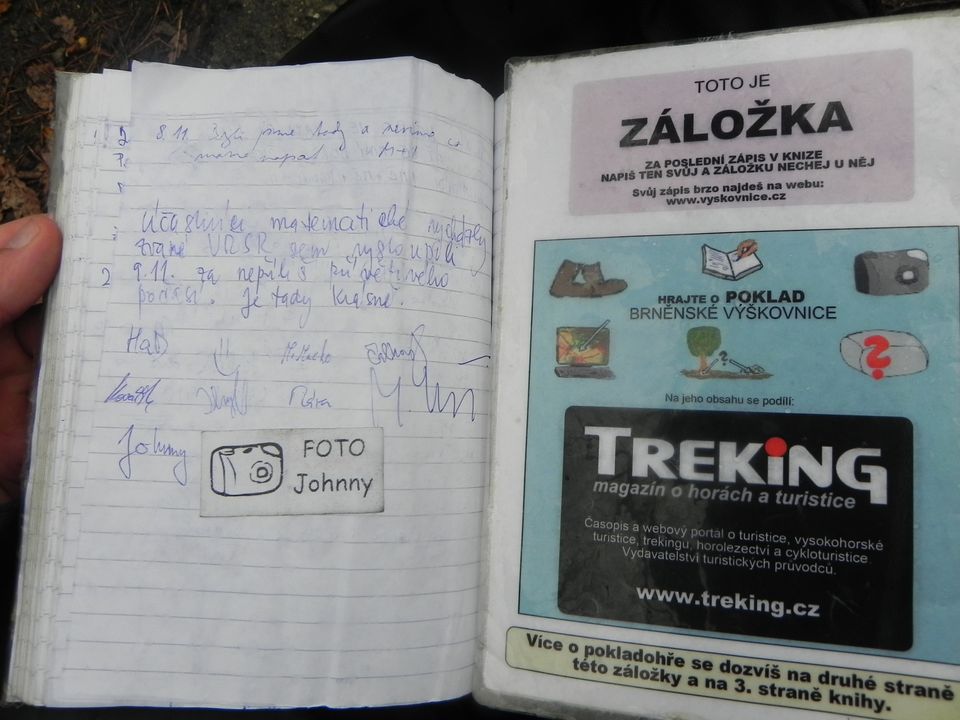 8.11. Byli jsme tady a nevíme co
máme napsat
Účastníci matematické vycházky
zvané VRSR sem vystoupili
9.11. za nepříliš přívětivého
počasí. Je tady krásně.
HaD
Mára
Johnny
FOTO
Johnny
TOTO JE
ZÁLOŽKA
ZA POSLEDNÍ ZÁPIS V KNIZE
NAPIŠ TEN SVŮJ A ZÁLOŽKU NECHEJ U NĚJ
Svůj zápis brzo najdeš na webu:
www.vyskovnice.cz
HRAJTE O POKLAD
BRNĚNSKÉ VÝŠKOVNICE
?
Na jeho obsahu se podílí:
TREKiNG
magazín o horách a turistice
Časopis a webový portál o turistice, vysokohorské
turistice, trekingu, horolezectví a cykloturistice.
Vydavatelství turistických průvodců.
www.treking.cz
Více o pokladohře se dozvíš na druhé straně
této záložky a na 3. straně knihy.